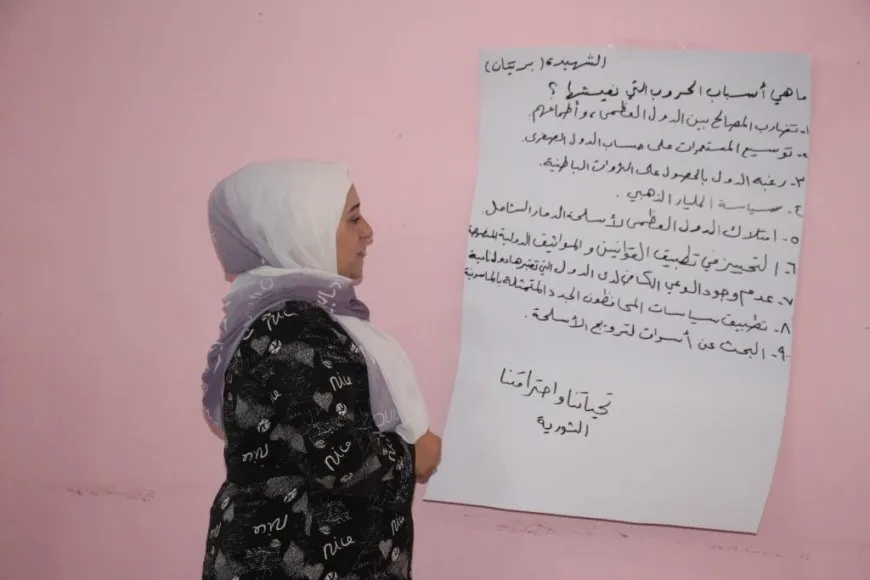 الشهيدة (بريتان)
ما هي أسباب الحروب التي نعيشها ؟
١- تضارب المصالح بين الدول العظمى، وأطماعهم.
٢- توسيع المستعمرات على حساب الدول الصغرى.
٣- رغبة الدول بالحصول على الثروات الباطنية.
٤- سياسة المليار الذهبي.
٥- امتلاك الدول العظمى لأسلحة الدمار الشامل.
٦- التحييز في تطبيق القوانين والمواثيق الدولية
٧- عدم وجود الوعي الكافي لدى الدول التي تعتبرها دول نامية
٨- تطبيق سياسات المحافظون الجدد المتمثلة بالماسونية
٩- البحث عن أسواق لترويج الأسلحة.
تحياتنا واحترامنا
الثورية
nice
nice
nice
nice
nice
nice